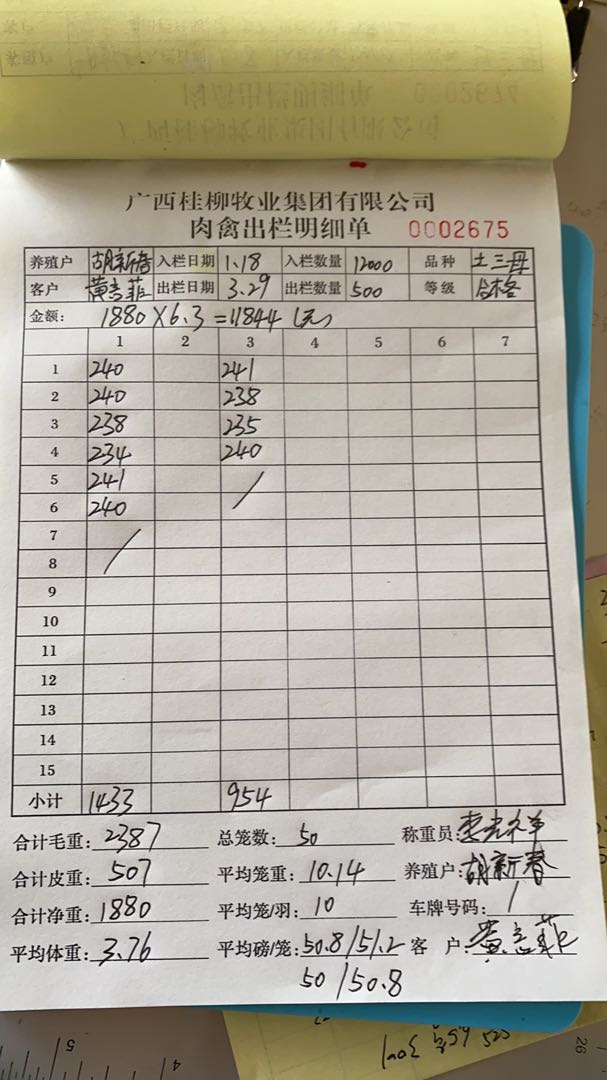 广西桂柳牧业集团有限公司
肉禽出栏明细单 0002675
养殖户 胡新春 入栏日期 1.18 入栏数量 12000 品种 土三母
客户 黄志菲 出栏日期 3.29 出栏数量 500 等级 合格
金额: 1880×6.3=11844(元)
1 2 3 4 5 6 7
1 240 241
2 240 238
3 238 235
4 234 240
5 241 /
6 240
7 /
8
9
10
11
12
13
14
15
小计 1433 954
合计毛重: 2387 总笼数: 50 称重员:
合计皮重: 507 平均笼重: 10.14 养殖户: 胡新春
合计净重: 1880 平均笼/羽: 10 车牌号码: /
平均体重: 3.76 平均磅/笼: 50.8/51.2 客 户: 黄志菲
50/50.8